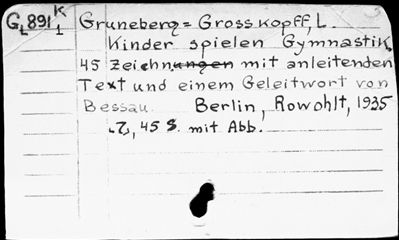 G891 K Gruneberg=Grosskopff, L.
L 1
Kinder spielen Gymnastik.
45 Zeichnungen mit anleitenden
Text und einem Geleitwort von
Bessau. Berlin, Rowohlt, 1935
45 S. mit Abb.